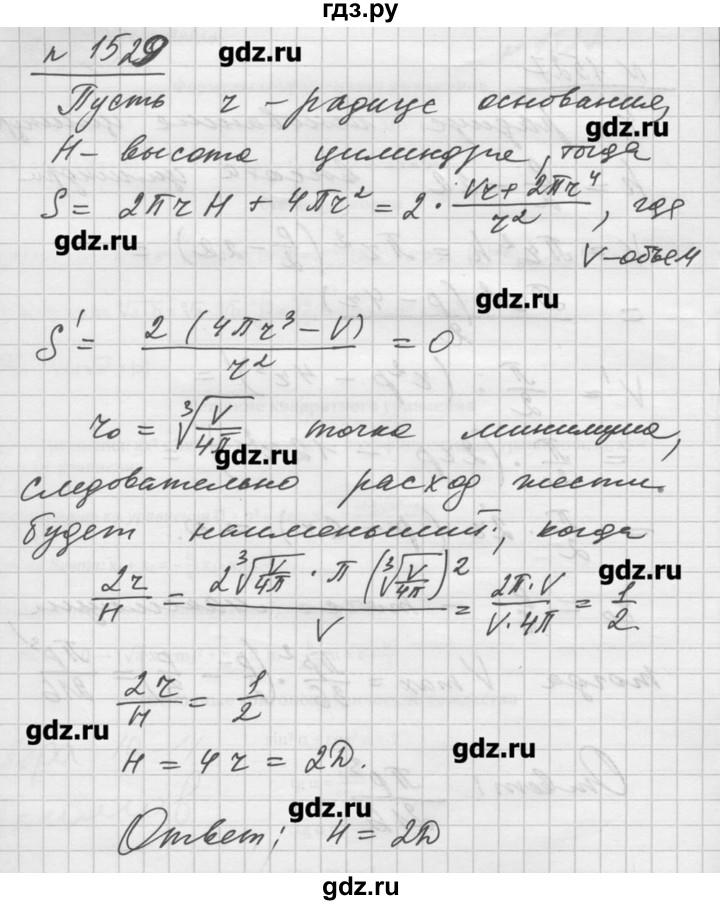 гдз.ру
n 1529
gdz.ru
Пусть r - радиус основания,
gdz.ru
H - высота цилиндра, тогда
S = 2πrH + 4πr² = 2 · (Vr + 2πr⁴)/r², где
gdz.ru
V-объем
gdz.ru
S' = 2(4πr³ - V)/r² = 0
r₀ = ∛(V/4π) точка минимума,
gdz.ru
следовательно расход жести
будет наименьший, когда
2r/H = 2∛(V/4π) · π(∛(V/4π))²/V = 2π·V/V·4π = 1/2
gdz.ru
2r/H = 1/2
gdz.ru
H = 4r = 2D.
gdz.ru
gdz.ru
Ответ: H = 2D
gdz.ru